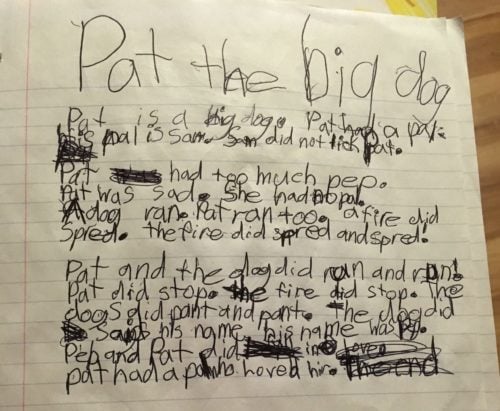 Pat the big dog
Pat is a big dog. Pat had a pal.
his pal is Sam. Sam did not lick Pat.
Pat had too much pep.
Pat was sad. She had no pal.
A dog ran. Pat ran too. a fire did
Spred. the fire did spred and spred.
Pat and the dog did run and run.
Pat did stop. the fire did stop. The
dogs did pant and pant. the dog did
his name. his name was
Pep and Pat did in
pat had a pal had